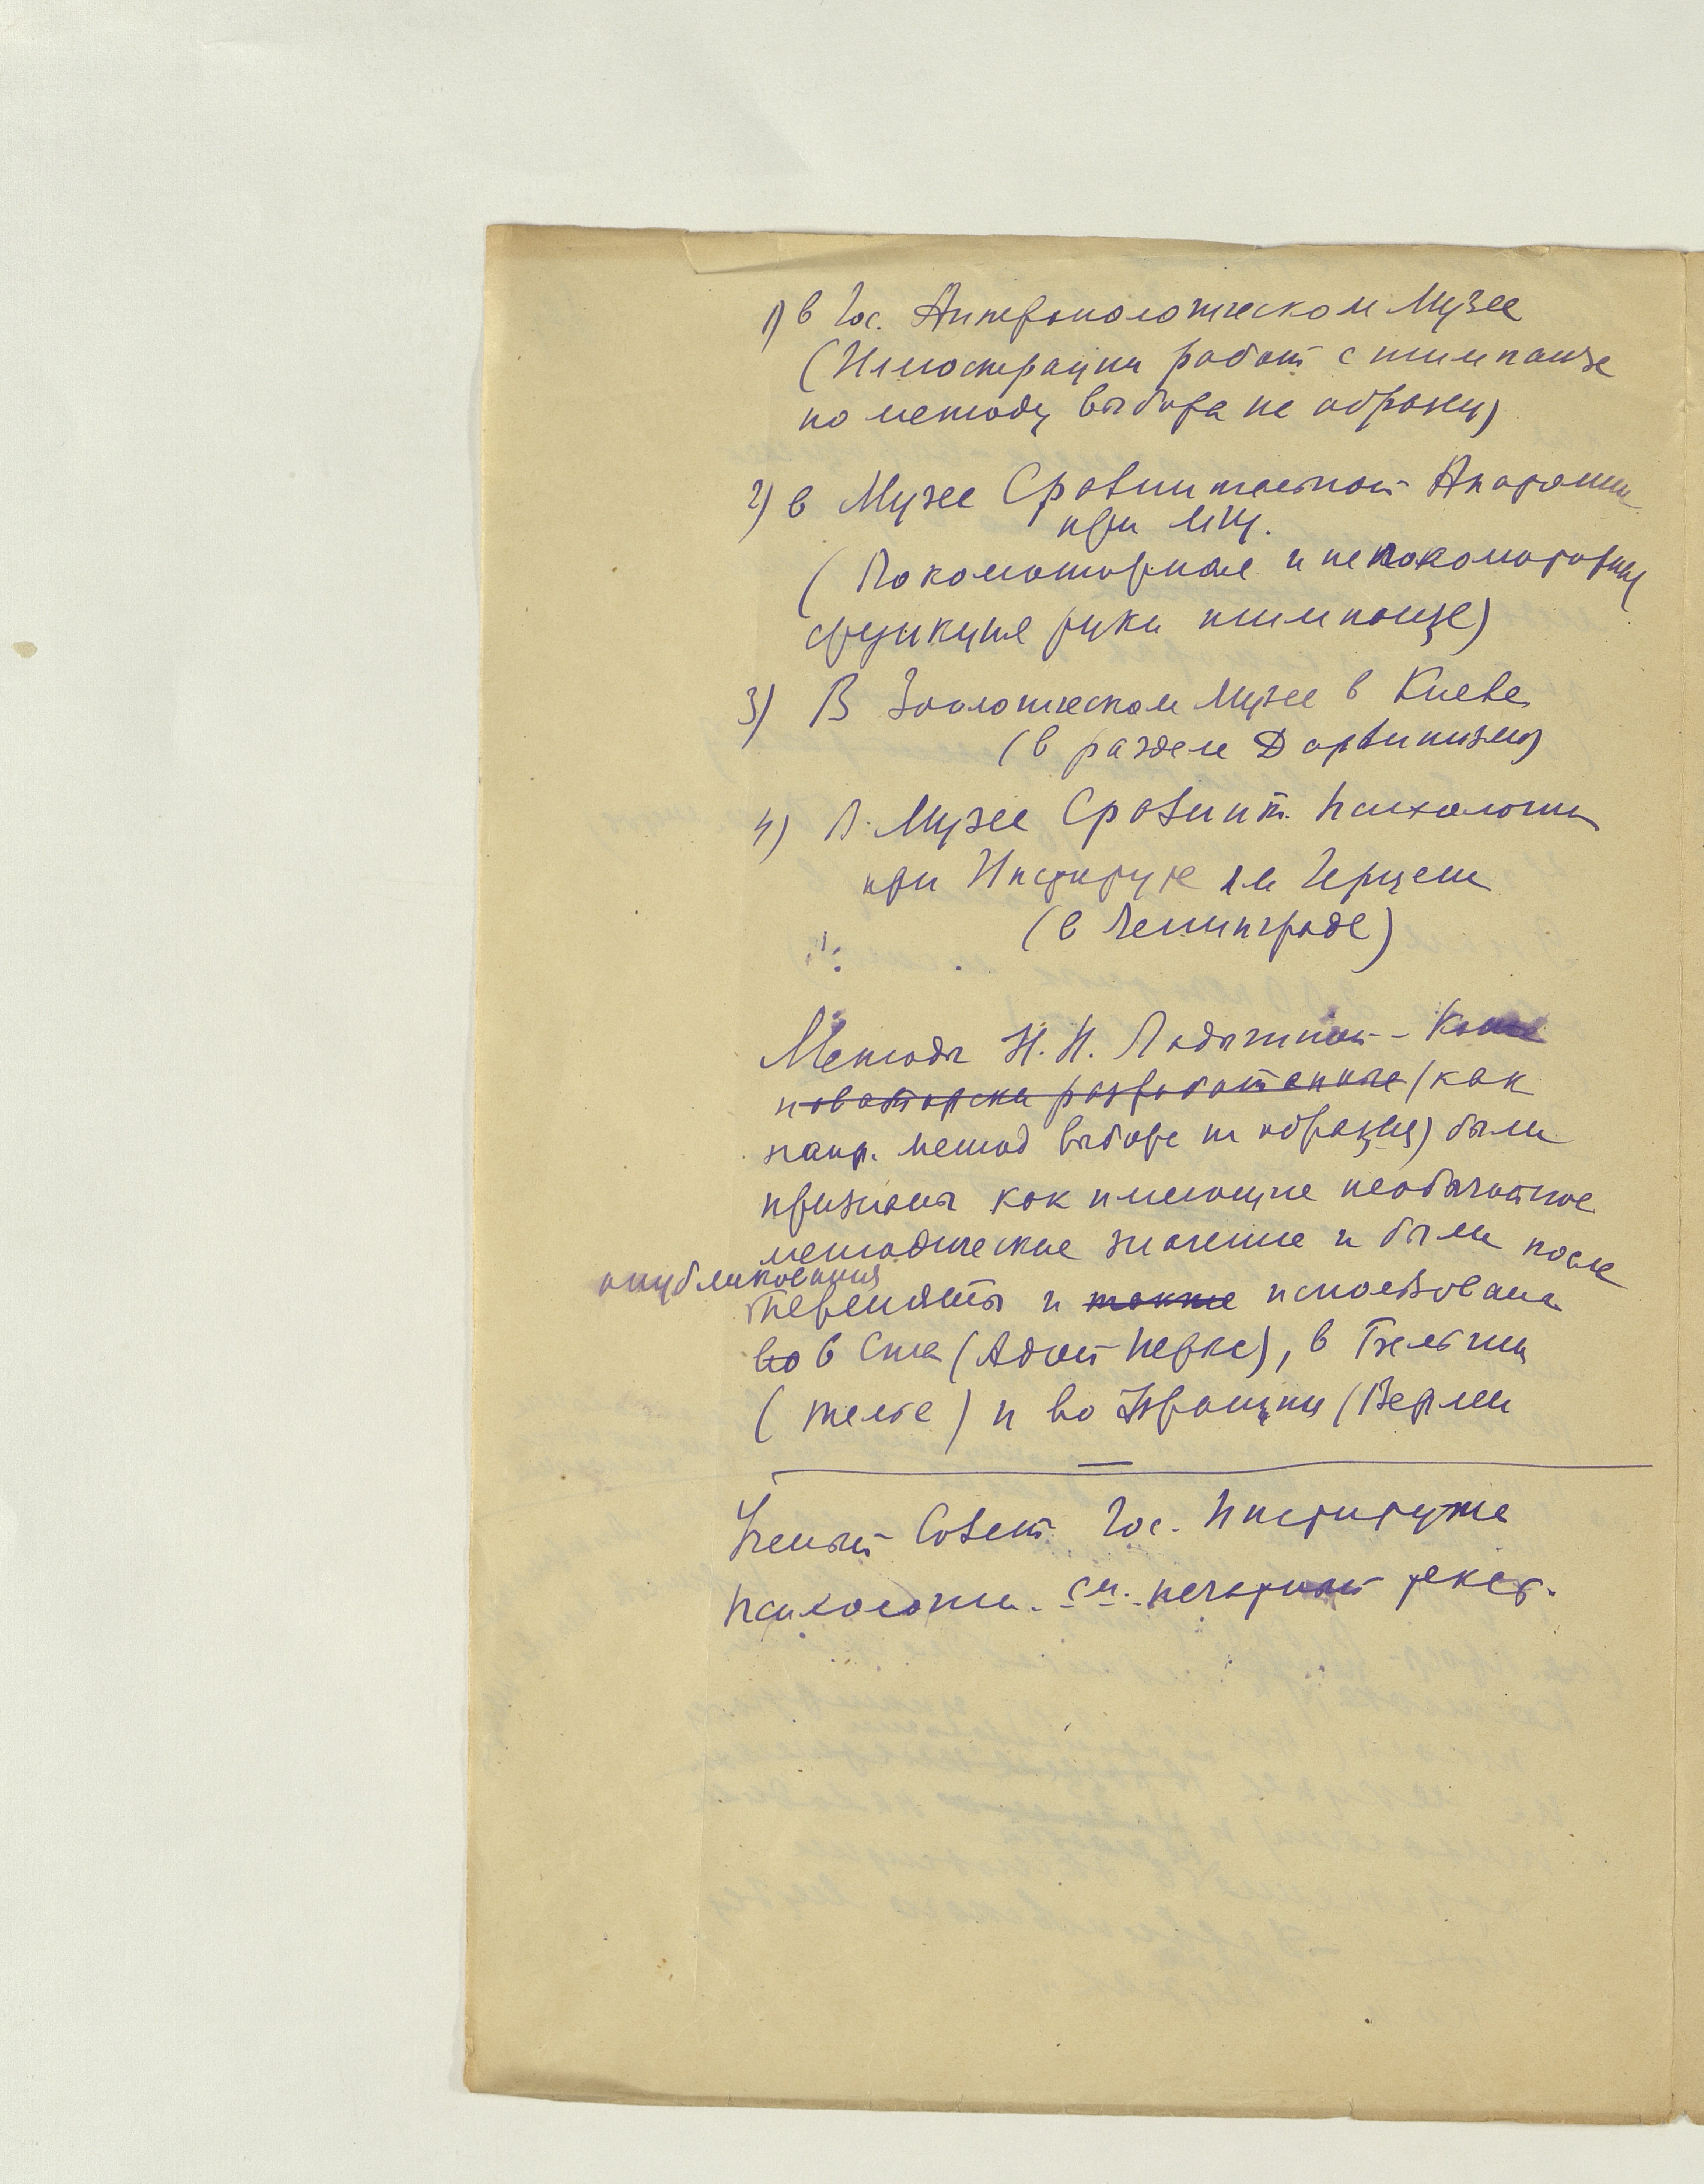 1) в Гос. Антропологическом Музее
(Иллюстрации работ с шимпанзе
по методу выбора на образец)
2) в Музее Сравнительной Анатомии
при МГУ.
(Локомоторная и нелокомоторная
функция руки шимпанзе)
3) В Зоологическом Музее в Киеве
(в разделе Дарвинизма)
4) В Музее Сравнит. Психологии
при Институте им Герцена
(в Ленинграде)
Методы Н. Н. Ладыгиной - Котс
новаторски разработанные (как
напр. метод выбора на образец) были
признаны как имеющие необычайное
методическое значение и были после
опубликования
переняты и также использованы
во в Сша (Адой Иеркс), в Бельгии
() и во Франции (Верлен
Ученый Совет Гос. Института
Психологии. см. печатный текст.